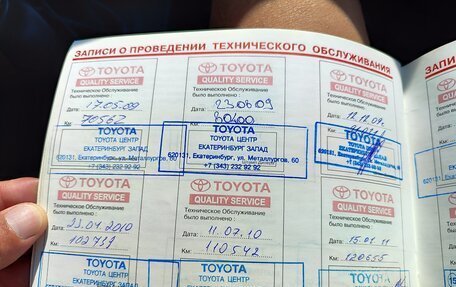 ЗАПИСИ О ПРОВЕДЕНИИ ТЕХНИЧЕСКОГО ОБСЛУЖИВАНИЯ
TOYOTA
QUALITY SERVICE
Техническое Обслуживание
было выполнено :
Дата: 17.05.09
Км: 70562
TOYOTA
TOYOTA ЦЕНТР
ЕКАТЕРИНБУРГ ЗАПАД
620131, Екатеринбург, ул. Металлургов, 60
+7 (343) 232 92 92
TOYOTA
QUALITY SERVICE
Техническое Обслуживание
было выполнено :
Дата: 23.06.09
Км: 80400
TOYOTA
TOYOTA ЦЕНТР
ЕКАТЕРИНБУРГ ЗАПАД
620131, Екатеринбург, ул. Металлургов, 60
+7 (343) 232 92 92
TOYOTA
QUALITY SERVICE
Техническое Обслуживание
было выполнено :
Дата:
Км:
TOYOTA
TOYOTA ЦЕНТР
ЕКАТЕРИНБУРГ ЗАПАД
620131, Екатеринбург, ул. Металлургов, 60
+7 (343) 232 92 92
TOYOTA
QUALITY SERVICE
Техническое Обслуживание
было выполнено :
Дата: 23.04.2010
Км: 102739
TOYOTA
TOYOTA ЦЕНТР
TOYOTA
QUALITY SERVICE
Техническое Обслуживание
было выполнено :
Дата: 11.07.10
Км: 110542
TOYOTA
TOYOTA ЦЕНТР
TOYOTA
QUALITY SERVICE
Техническое Обслуживание
было выполнено :
Дата: 15.01.11
Км: 120655
ЗАПИ